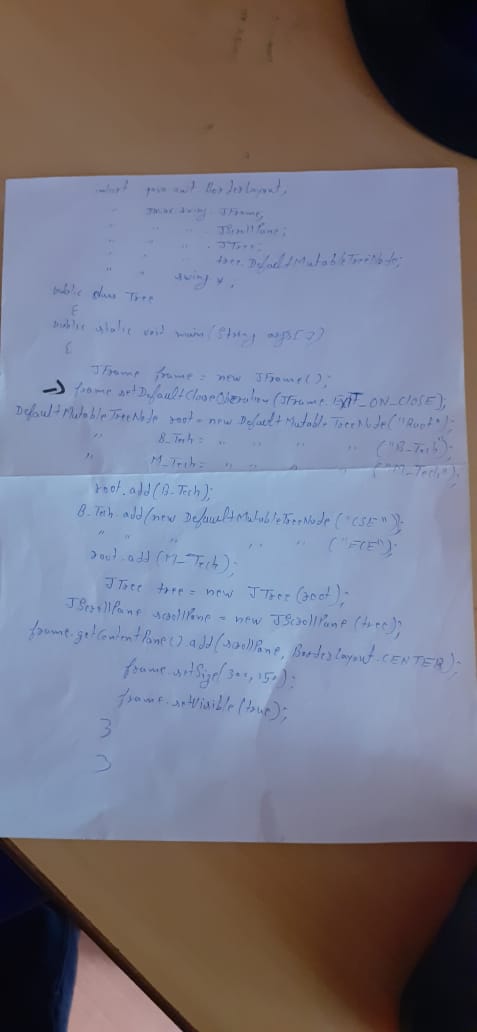 import java.awt.BorderLayout;
" javax.swing. JFrame;
" " " JScrollPane;
" " " JTree;
" " " tree. DefaultMutableTreeNode;
" " swing *;
public class Tree
{
public static void main(String args[])
{
JFrame frame = new JFrame();
→ frame.setDefaultCloseOperation(JFrame.EXIT_ON_CLOSE);
DefaultMutableTreeNode root = new DefaultMutableTreeNode("Root");
" B_Tech = " " " ("B-Tech");
" M_Tech = " " " ("M-Tech");
root.add(B-Tech);
B_Teh.add(new DefaultMutableTreeNode ("CSE"));
" " " " " " ("ECE"));
root.add (M-Tech);
JTree tree = new JTree (root);
JScrollPane scrollPane = new JScrollPane (tree);
frame.getContentPane().add(scrollPane, BorderLayout.CENTER);
frame.setSize(300,150);
frame.setVisible (true);
}
}